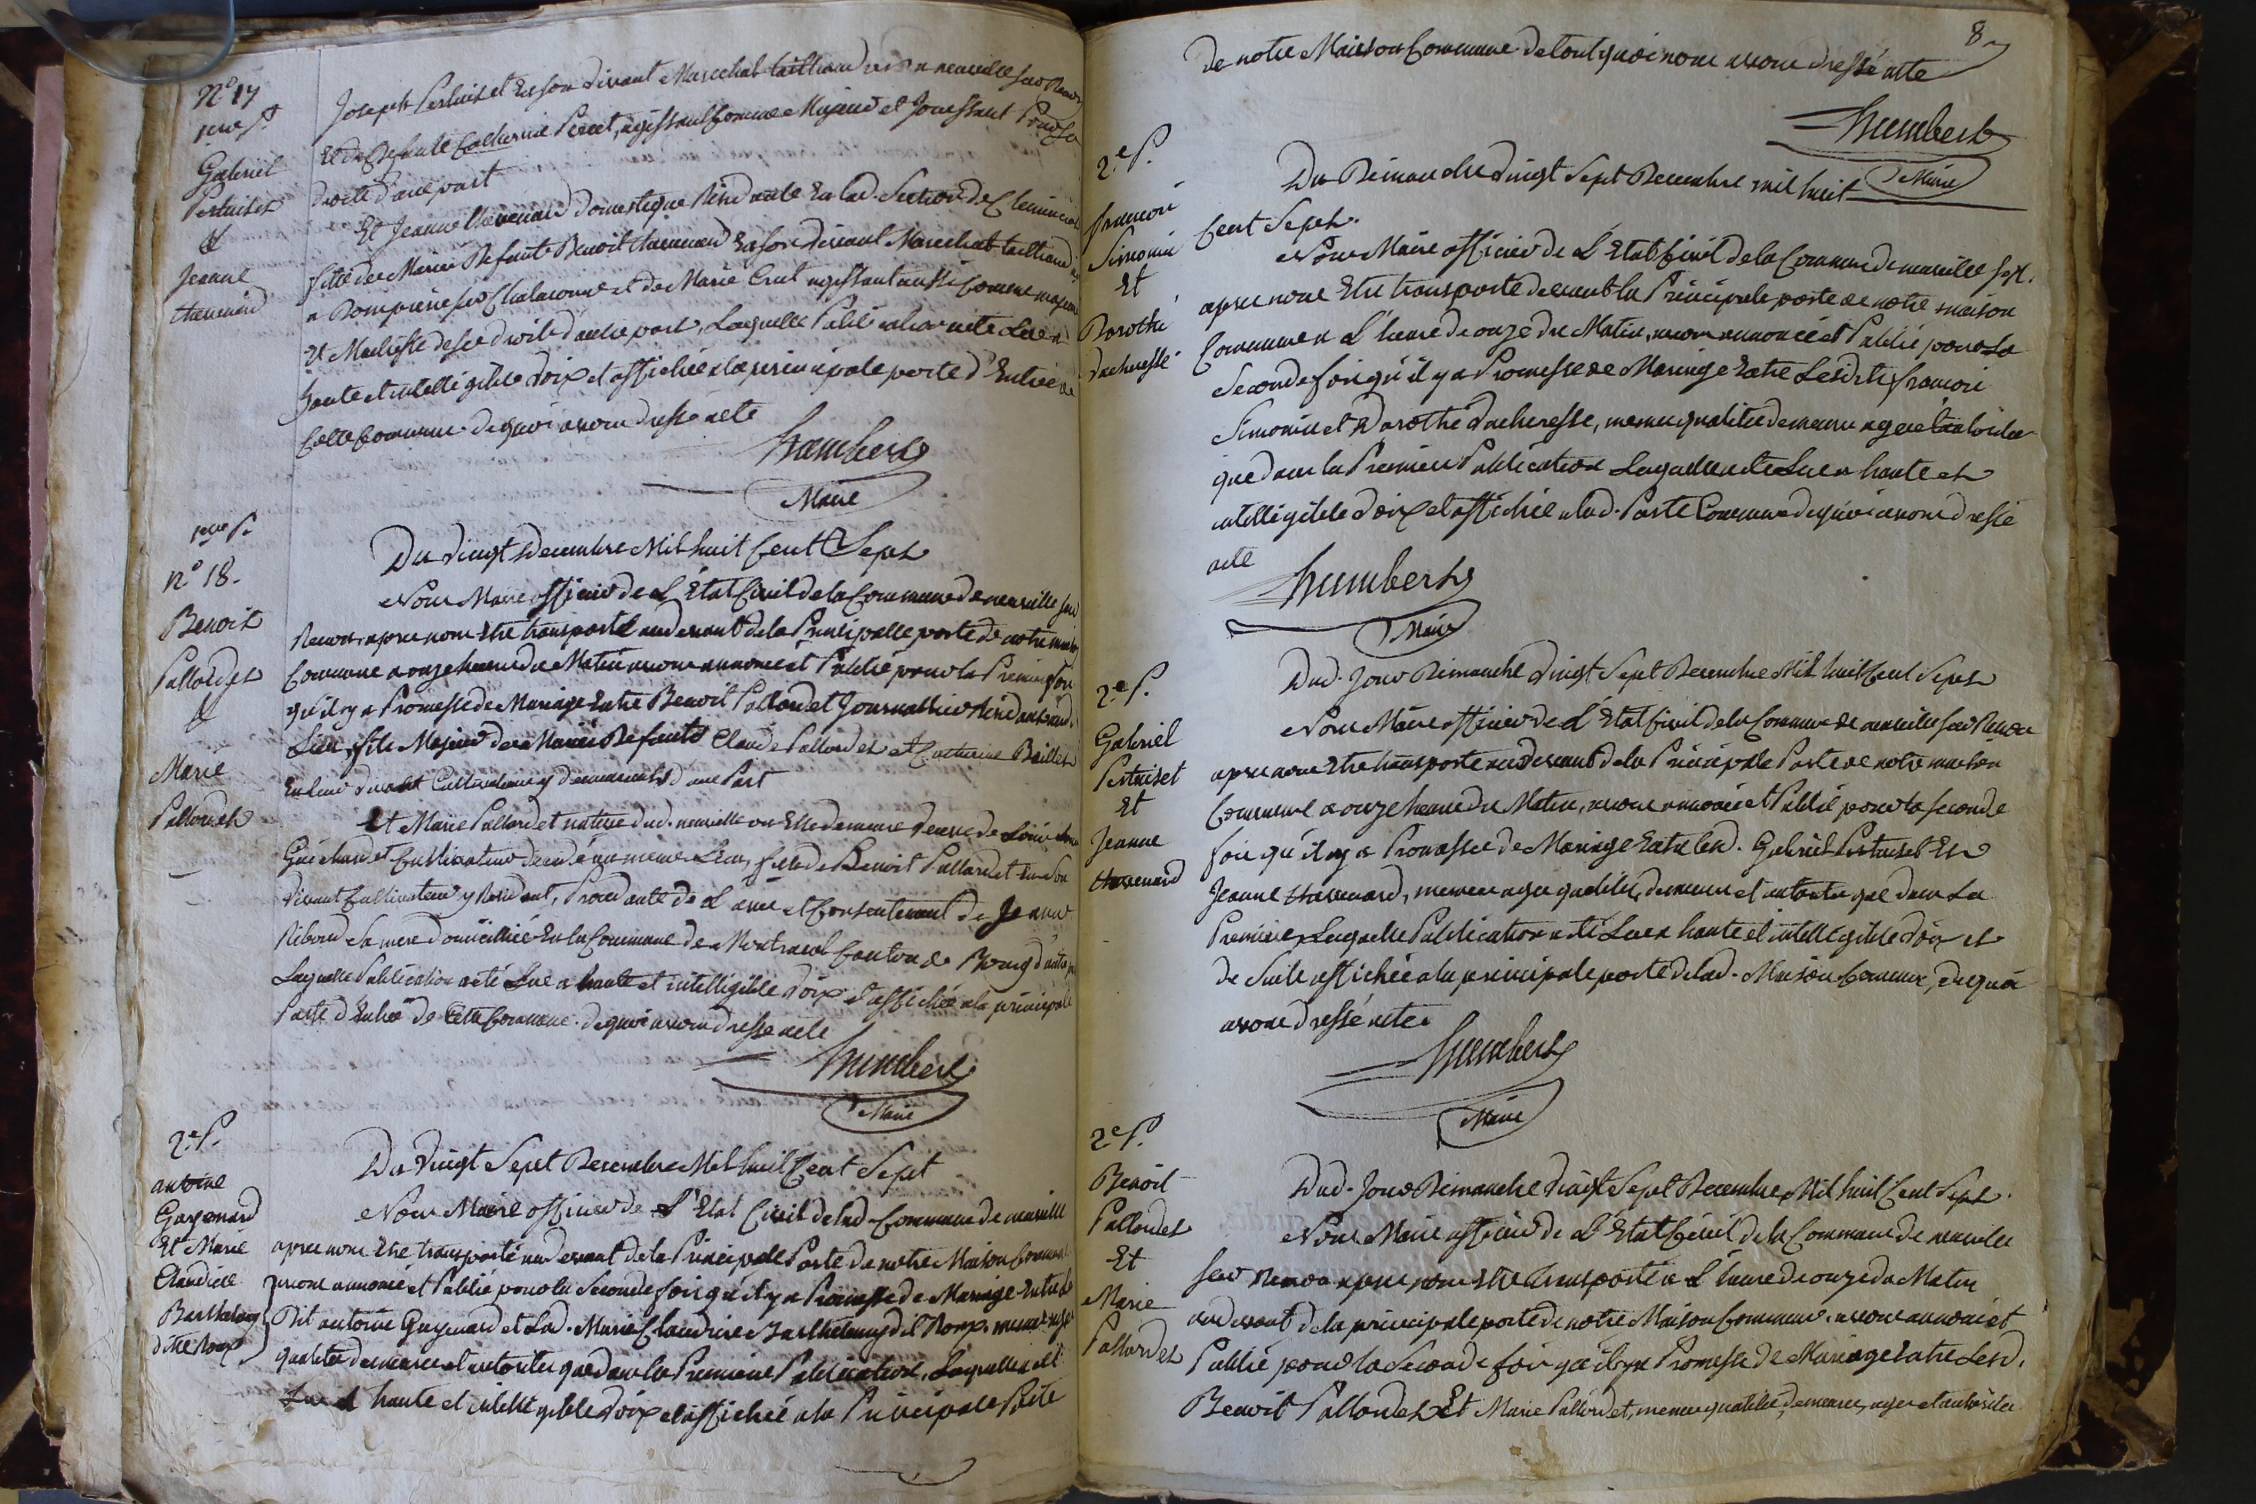 N° 17
1ere P.
Gabriel
Pertuiset
&
Jeanne
thevenard
Joseph Pertuiset En son vivant Marechal taillandier a neuville sur Renon
Et de Defunte Catherine Perret, agissant Comme Majeur et Jouissant Pour Sa
droits d'une part
Et Jeanne thevenard Domestique Résidante En lad. Section de
fille des Mariés Defunts Benoit thevenard En son vivant Marechal taillandier
a Dompierre sur Chalaronne et de Marie Crut agissant aussi Comme majeure
Et Maitresse de ses droits d'autre part, Laquelle Publication acte Lue a
haute et intelligible voix et affichée a la principale porte d'Entrée de
Cette Commune. de quoi avons dressé acte
humbert
Maire
1ere P.
n° 18.
Benoit
Pallordet
&
Marie
Pallordet
Du vingt Decembre Mil huit Cent Sept
Nous Maire officier de L'État Civil de la Commune de neuville sur
Renon, apres nous Etre transporté au devant de la Principalle porte de notre maison
Commune a onze heures du Matin avons annoncé et Publié pour la Premiere fois
qu'il y a Promesse de Mariage Entre Benoit Pallordet Journallier Résidant aud.
Lieu, fils Majeur des Mariés Defunts Claude Pallordet et Catherine Baillet
En leur vivant Cultivateurs y demeurants d'une Part
Et Marie Pallordet native dud. neuville ou Elle demeure veuve de Louis
Guichardet Cultivateur décédé au meme Lieu, fille de Benoit Pallordet En son
vivant Cultivateur y Résidant, Procedante de L'avis et Consentement de Jeanne
Riboud Sa mere domiciliée En la Commune de Montracol Canton de Bourg d'autre
Laquelle Publication acte Lue a haute et intelligible voix et affichée a la principale
Porte d'Entrée de Cette Commune. de quoi avons dressé acte
humbert
Maire
2.e P.
antoine
Guyenard
Et Marie
Claudine
Barthelemy
dite Romp
Du vingt Sept Decembre Mil huit Cent Sept
Nous Maire officier de L'Etat Civil de lad. Commune de neuville
apres nous Etre transporté au devant de la Principale Porte de notre Maison Commune
avons annoncé et Publié pour la Seconde fois qu'il y a Promesse de Mariage Entre le
Dit antoine Guyenard et Lad. Marie Claudine Barthelemy dit Romp. memes ages
qualités demeures et autorités que dans la Premiere Publication, Laquelle acte
Lue a haute et intelligible voix et affichée a la Principale Porte
8
de notre Maison Commune de tout quoi nous avons dressé acte
humbert
Maire
2.e P.
francois
Simonin
Et
Dorothé
ducheresse
Du Dimanche vingt Sept Decembre mil huit
Cent Sept.
Nous Maire officier de L'Etat Civil de la Commune de neuville sur R.
apres nous Etre transporté devant la Principale porte de notre maison
Commune a L'heure de onze du Matin, avons annoncé et Publié pour la
Seconde fois qu'il y a Promesse de Mariage Entre Lesdits francois
Simonin et Dorothé ducheresse, memes qualités demeures ages et autorités
que dans la Premiere Publication Laquelle acte Lue a haute et
intelligible voix et affichée a lad. Porte Commune de quoi avons dressé
acte
humbert
Maire
2.e P.
Gabriel
Pertuiset
Et
Jeanne
thevenard
Dud. Jour Dimanche vingt Sept Decembre Mil huit Cent Sept
Nous Maire officier de L'Etat Civil de la Commune de neuville sur Renon
apres nous Etre transporté au devant de la Principale Porte de notre maison
Commune a onze heures du Matin, avons annoncé et Publié pour la Seconde
fois qu'il y a Promesse de Mariage Entre Lesd. Gabriel Pertuiset Et
Jeanne thevenard, memes ages qualités, demeures et autorités que dans La
Premiere, Laquelle Publication acte Lue a haute et intelligible voix et
de Suite affichée a la principale porte de lad. Maison Commune, de quoi
avons dressé acte
humbert
Maire
2.e P.
Benoit
Pallordet
Et
Marie
Pallordet
Dud. Jour Dimanche vingt Sept Decembre Mil huit Cent Sept.
Nous Maire officier de L'Etat Civil de la Commune de neuville
sur Renon apres nous Etre transporté a L'heure de onze du Matin
au devant de la principale porte de notre Maison Commune. avons annoncé et
Publié pour la Seconde fois qu'il y a Promesse de Mariage Entre Lesd.
Benoit Pallordet Et Marie Pallordet, memes qualités, demeures, ages et autorités